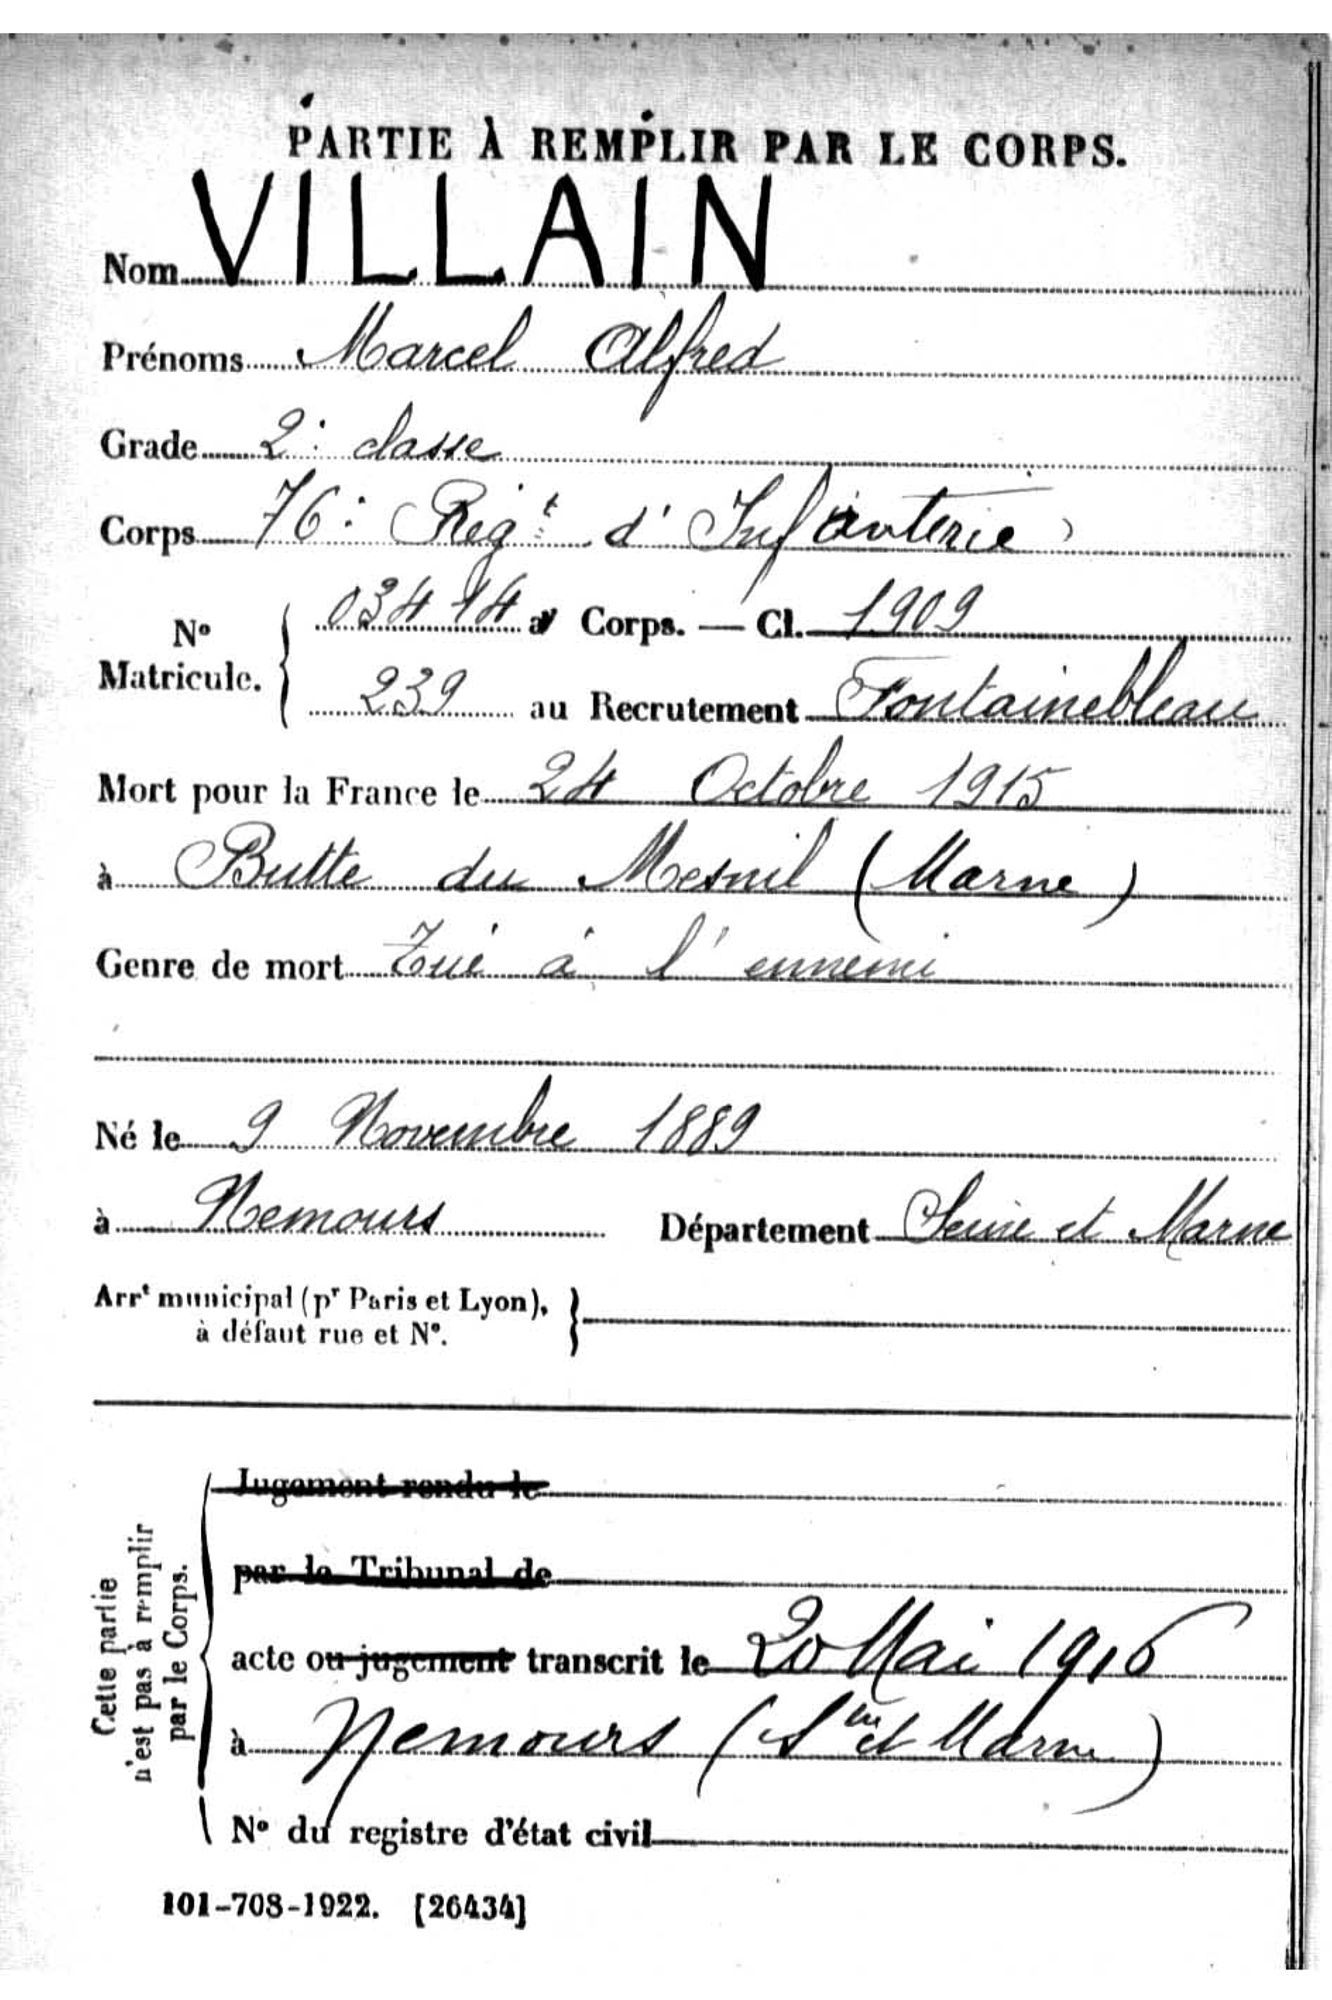 PARTIE À REMPLIR PAR LE CORPS.
Nom VILLAIN
Prénoms Marcel Alfred
Grade 2e classe
Corps 76e Régt d'Infanterie
No Matricule. { 03414 au Corps. — Cl. 1909
239 au Recrutement Fontainebleau
Mort pour la France le 24 Octobre 1915
à Butte du Mesnil (Marne)
Genre de mort Tué à l'ennemi
Né le 9 Novembre 1889
à Nemours Département Seine et Marne
Arrt municipal (pr Paris et Lyon), }
à défaut rue et No.
Cette partie
n'est pas à remplir
par le Corps.
Jugement rendu le
par le Tribunal de
acte ou jugement transcrit le 20 Mai 1916
à Nemours (S. et Marne)
No du registre d'état civil
101-708-1922. [26434]